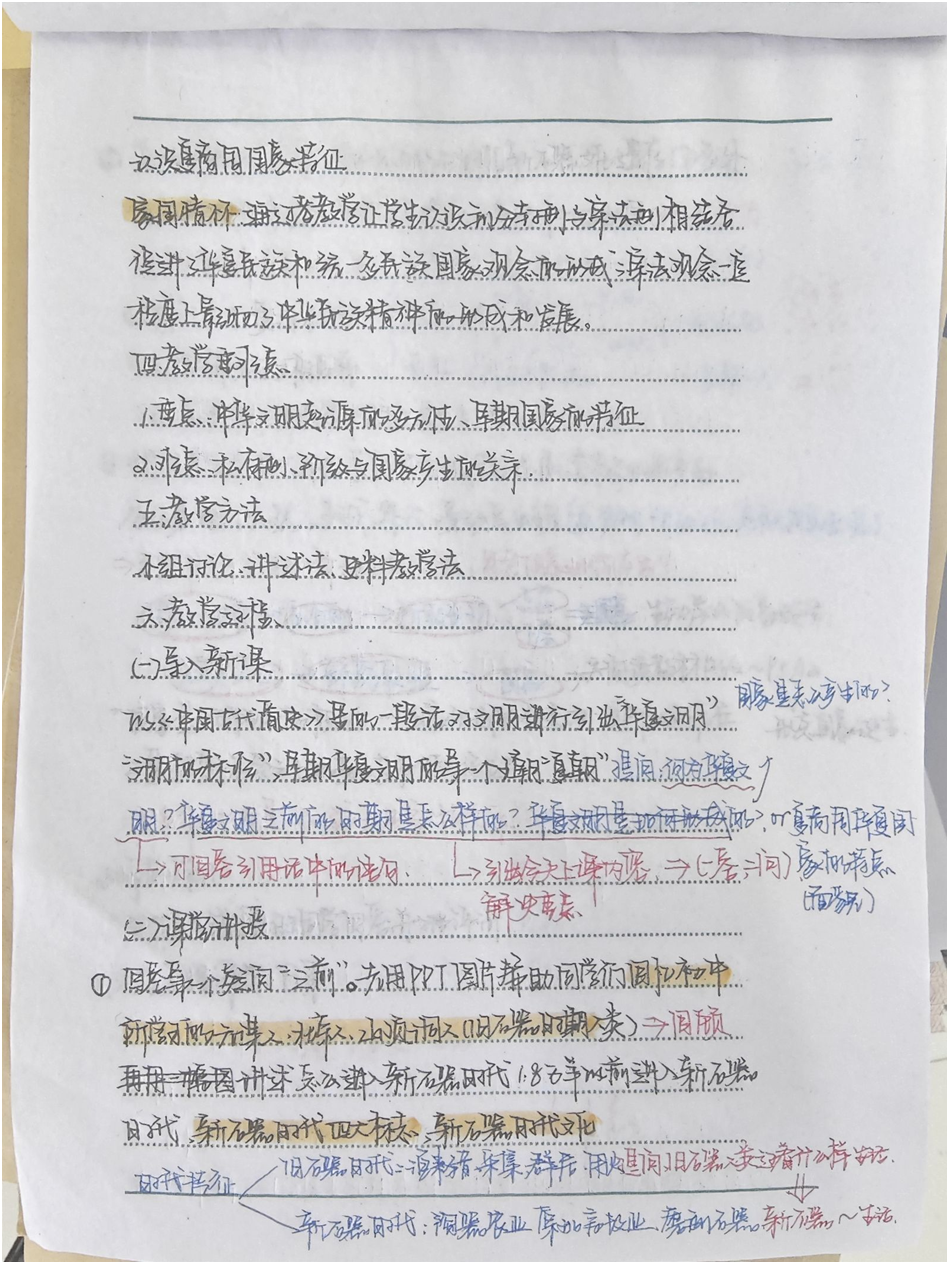 认识夏商周国家特征
家国情怀:通过教学让学生认识到分封制与宗法制相结合
促进了华夏民族和统一多民族国家观念的形成,宗法观念一定
程度上影响了中华民族精神的形成和发展。
四、教学重难点
1.重点:中华文明起源的多元性、早期国家的特征
2.难点:私有制、阶级与国家产生的关系
五、教学方法
小组讨论、讲述法、史料教学法
六、教学过程
(一)导入新课
以《中国古代简史》里的一段话对文明进行引出“华夏文明”
国家是怎么产生的?
“文明的标志”,早期华夏文明的第一个王朝“夏朝”提问:何为华夏文
明?华夏文明之前的时期是怎么样的?华夏文明是如何形成的?,
夏商周华夏国
家的特点
→可回答引用话中的语句.
→引出今天上课内容. ⇒(一答二问)
解决重点
(二)课堂讲授
① 回答第一个疑问“之前”。先用PPT图片帮助同学们回忆初中
所学习的元谋人、北京人、山顶洞人(旧石器时期人类)→回顾
再用三幅图讲述怎么进入新石器时代1.8万年以前进入新石器
时代,新石器时代四大标志,新石器时代文化
时代特征
旧石器时代:采集 群居、用火
追问旧石器人类过着什么样生活.
新石器时代:陶器农业 原始畜牧业、磨制石器
新石器~生活.